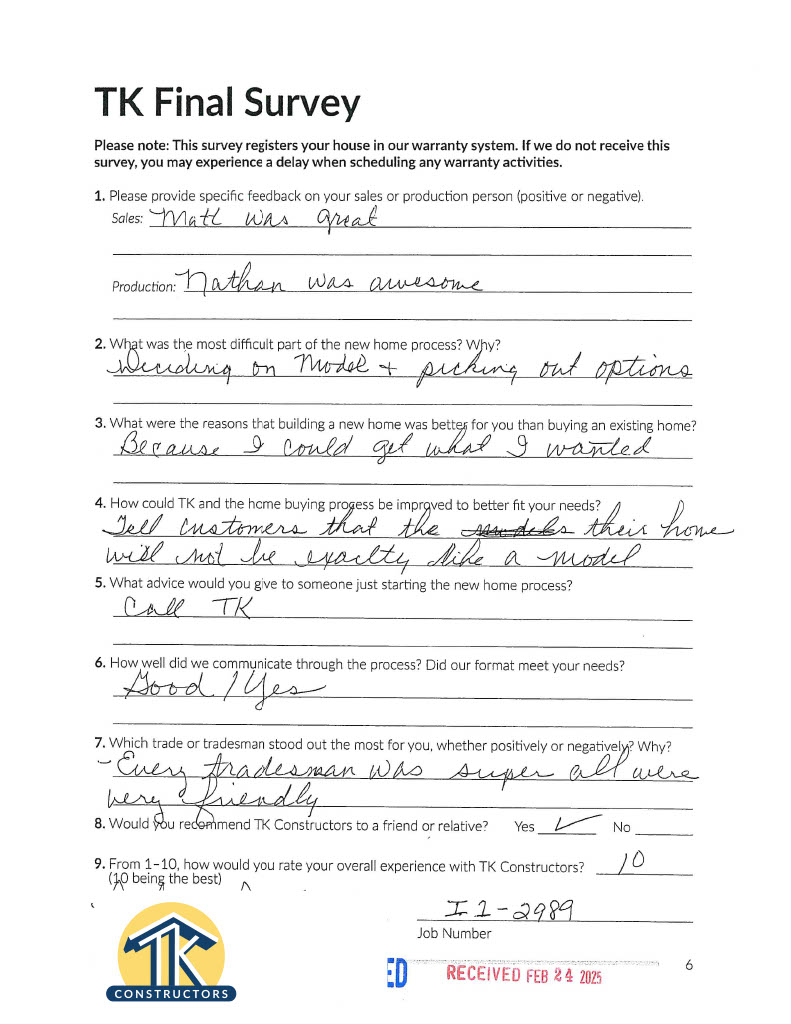 TK Final Survey
Please note: This survey registers your house in our warranty system. If we do not receive this
survey, you may experience a delay when scheduling any warranty activities.
1. Please provide specific feedback on your sales or production person (positive or negative).
Sales: Matt was great
Production: Nathan was awesome
2. What was the most difficult part of the new home process? Why?
Deciding on Model + picking out options
3. What were the reasons that building a new home was better for you than buying an existing home?
Because I could get what I wanted
4. How could TK and the home buying process be improved to better fit your needs?
Tell customers that the models their home
will not be exaclty like a model
5. What advice would you give to someone just starting the new home process?
Call TK
6. How well did we communicate through the process? Did our format meet your needs?
Good / Yes
7. Which trade or tradesman stood out the most for you, whether positively or negatively? Why?
- Every tradesman was super all were
very friendly
8. Would you recommend TK Constructors to a friend or relative? Yes ✓ No
9. From 1–10, how would you rate your overall experience with TK Constructors? 10
(10 being the best)
I1-2989
Job Number
TK
CONSTRUCTORS
ED RECEIVED FEB 24 2025
6